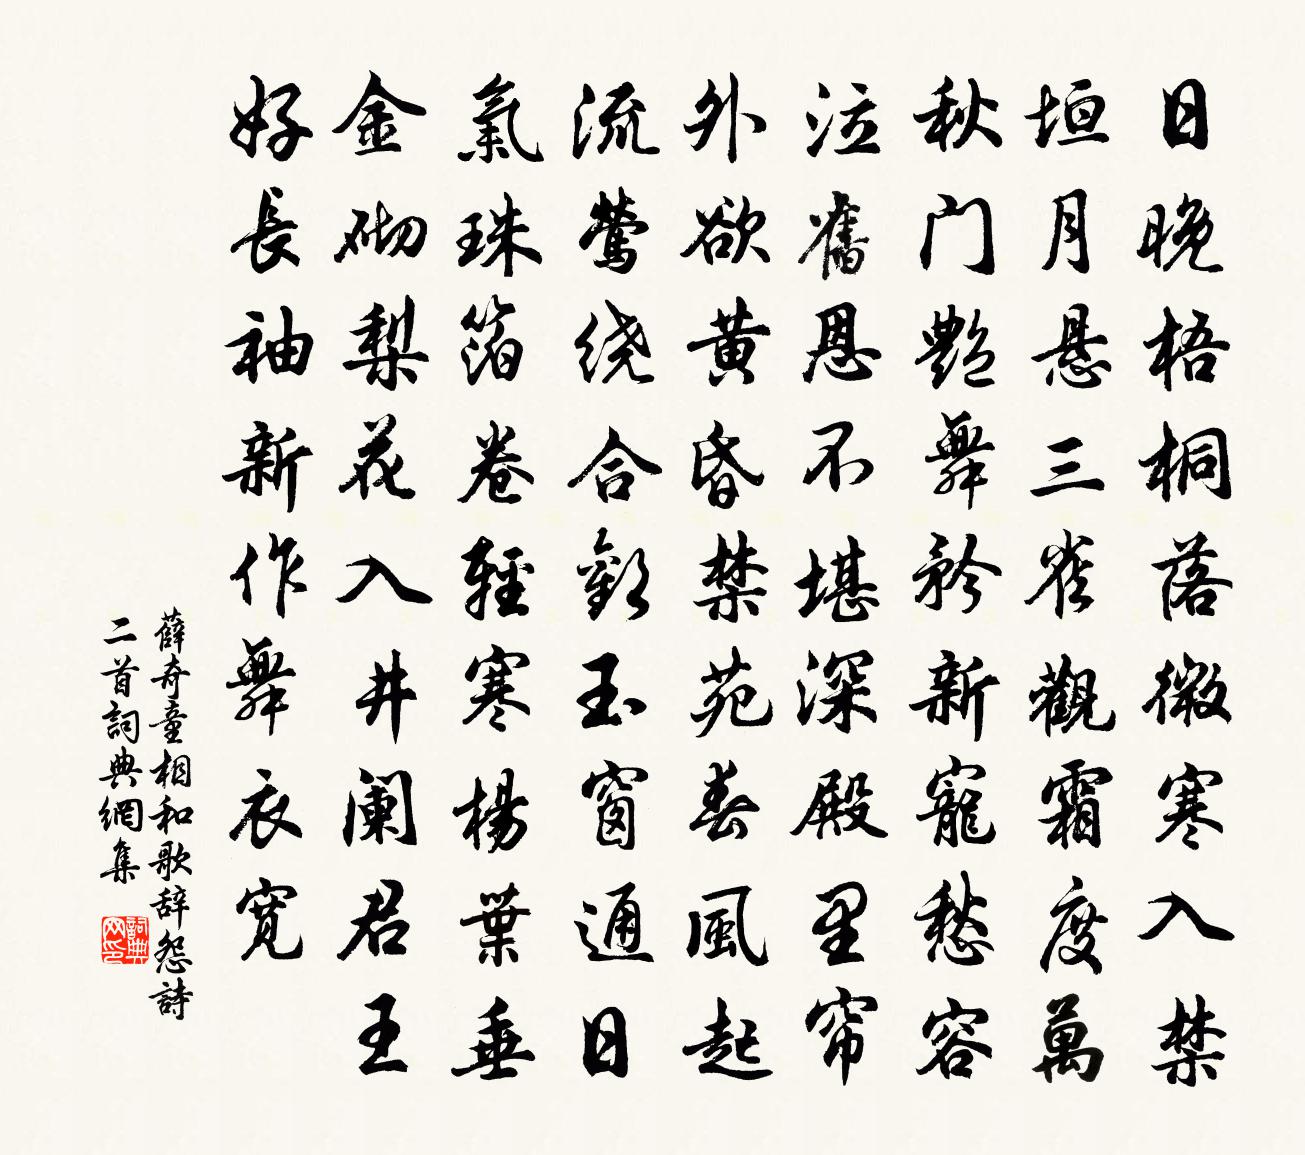 日晚梧桐落微寒入禁
垣月悬三雀觀霜度萬
秋门艷舞矜新寵愁容
泣舊恩不堪深殿里帘
外欲黄昏禁苑春風起
流鶯绕合歡玉窗通日
氣珠箔卷輕寒楊葉垂
金砌梨花入井阑君王
好長袖新作舞衣寬
薛奇童相和歌辞怨詩
二首詞典網集
詞典
网印